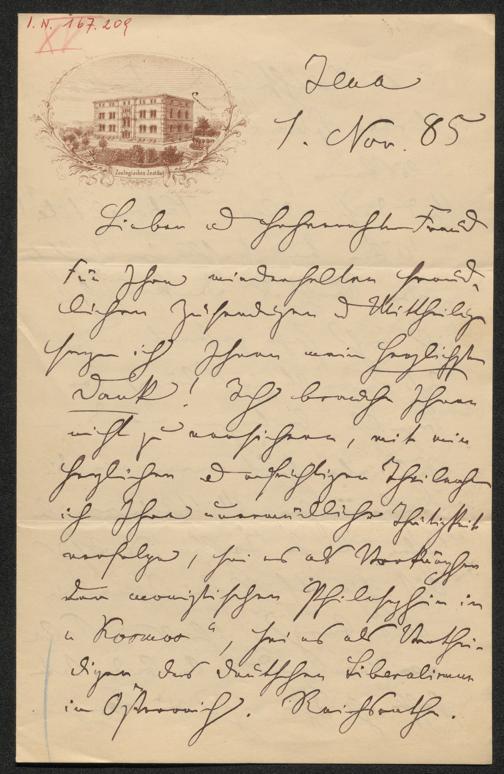 I.N. 167.209
Zoologisches Institut
Jena
1. Nov. 85
Lieber u hochverehrter Freund
Für Ihre wiederholten freund-
lichen Zusendungen u Mittheilungen
sage ich Ihnen meinen herzlichsten
Dank! Ich brauche Ihnen
nicht zu versichern, mit wie
herzlicher u aufrichtiger Theilnahme
ich Ihre unermüdliche Thätigkeit
verfolge, sei es als Vorkämpfer
der monistischen Philosophie im
„Kosmos“, sei es als Verthei-
diger des deutschen Liberalismus
im Österreich. Reichsrathe.